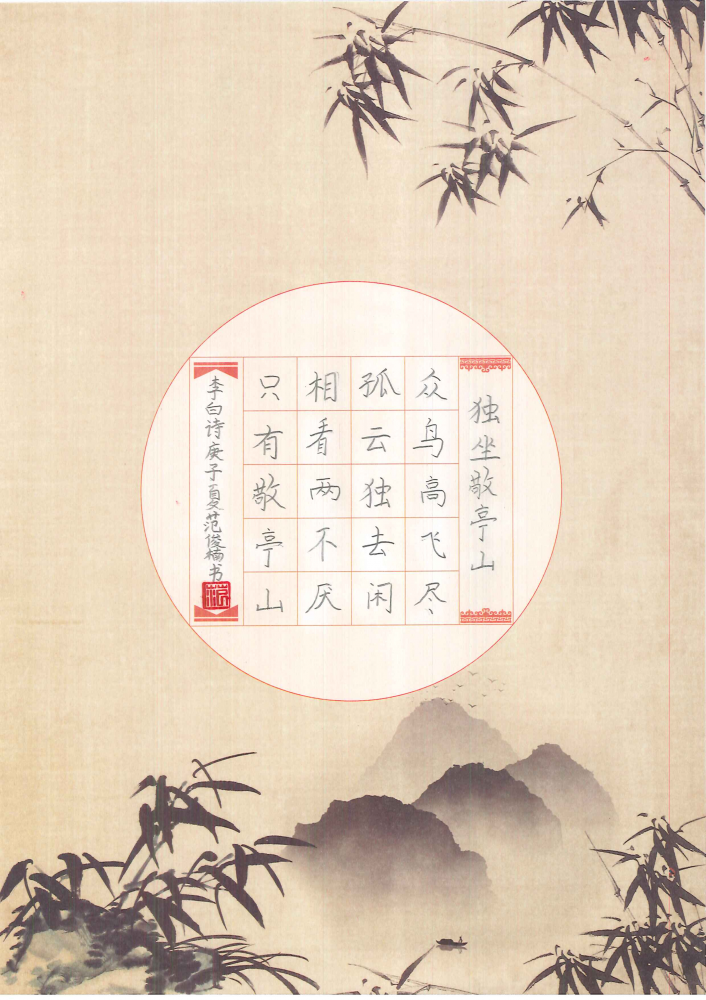 独坐敬亭山
众鸟高飞尽
孤云独去闲
相看两不厌
只有敬亭山
李白诗庚子夏范俊楠书